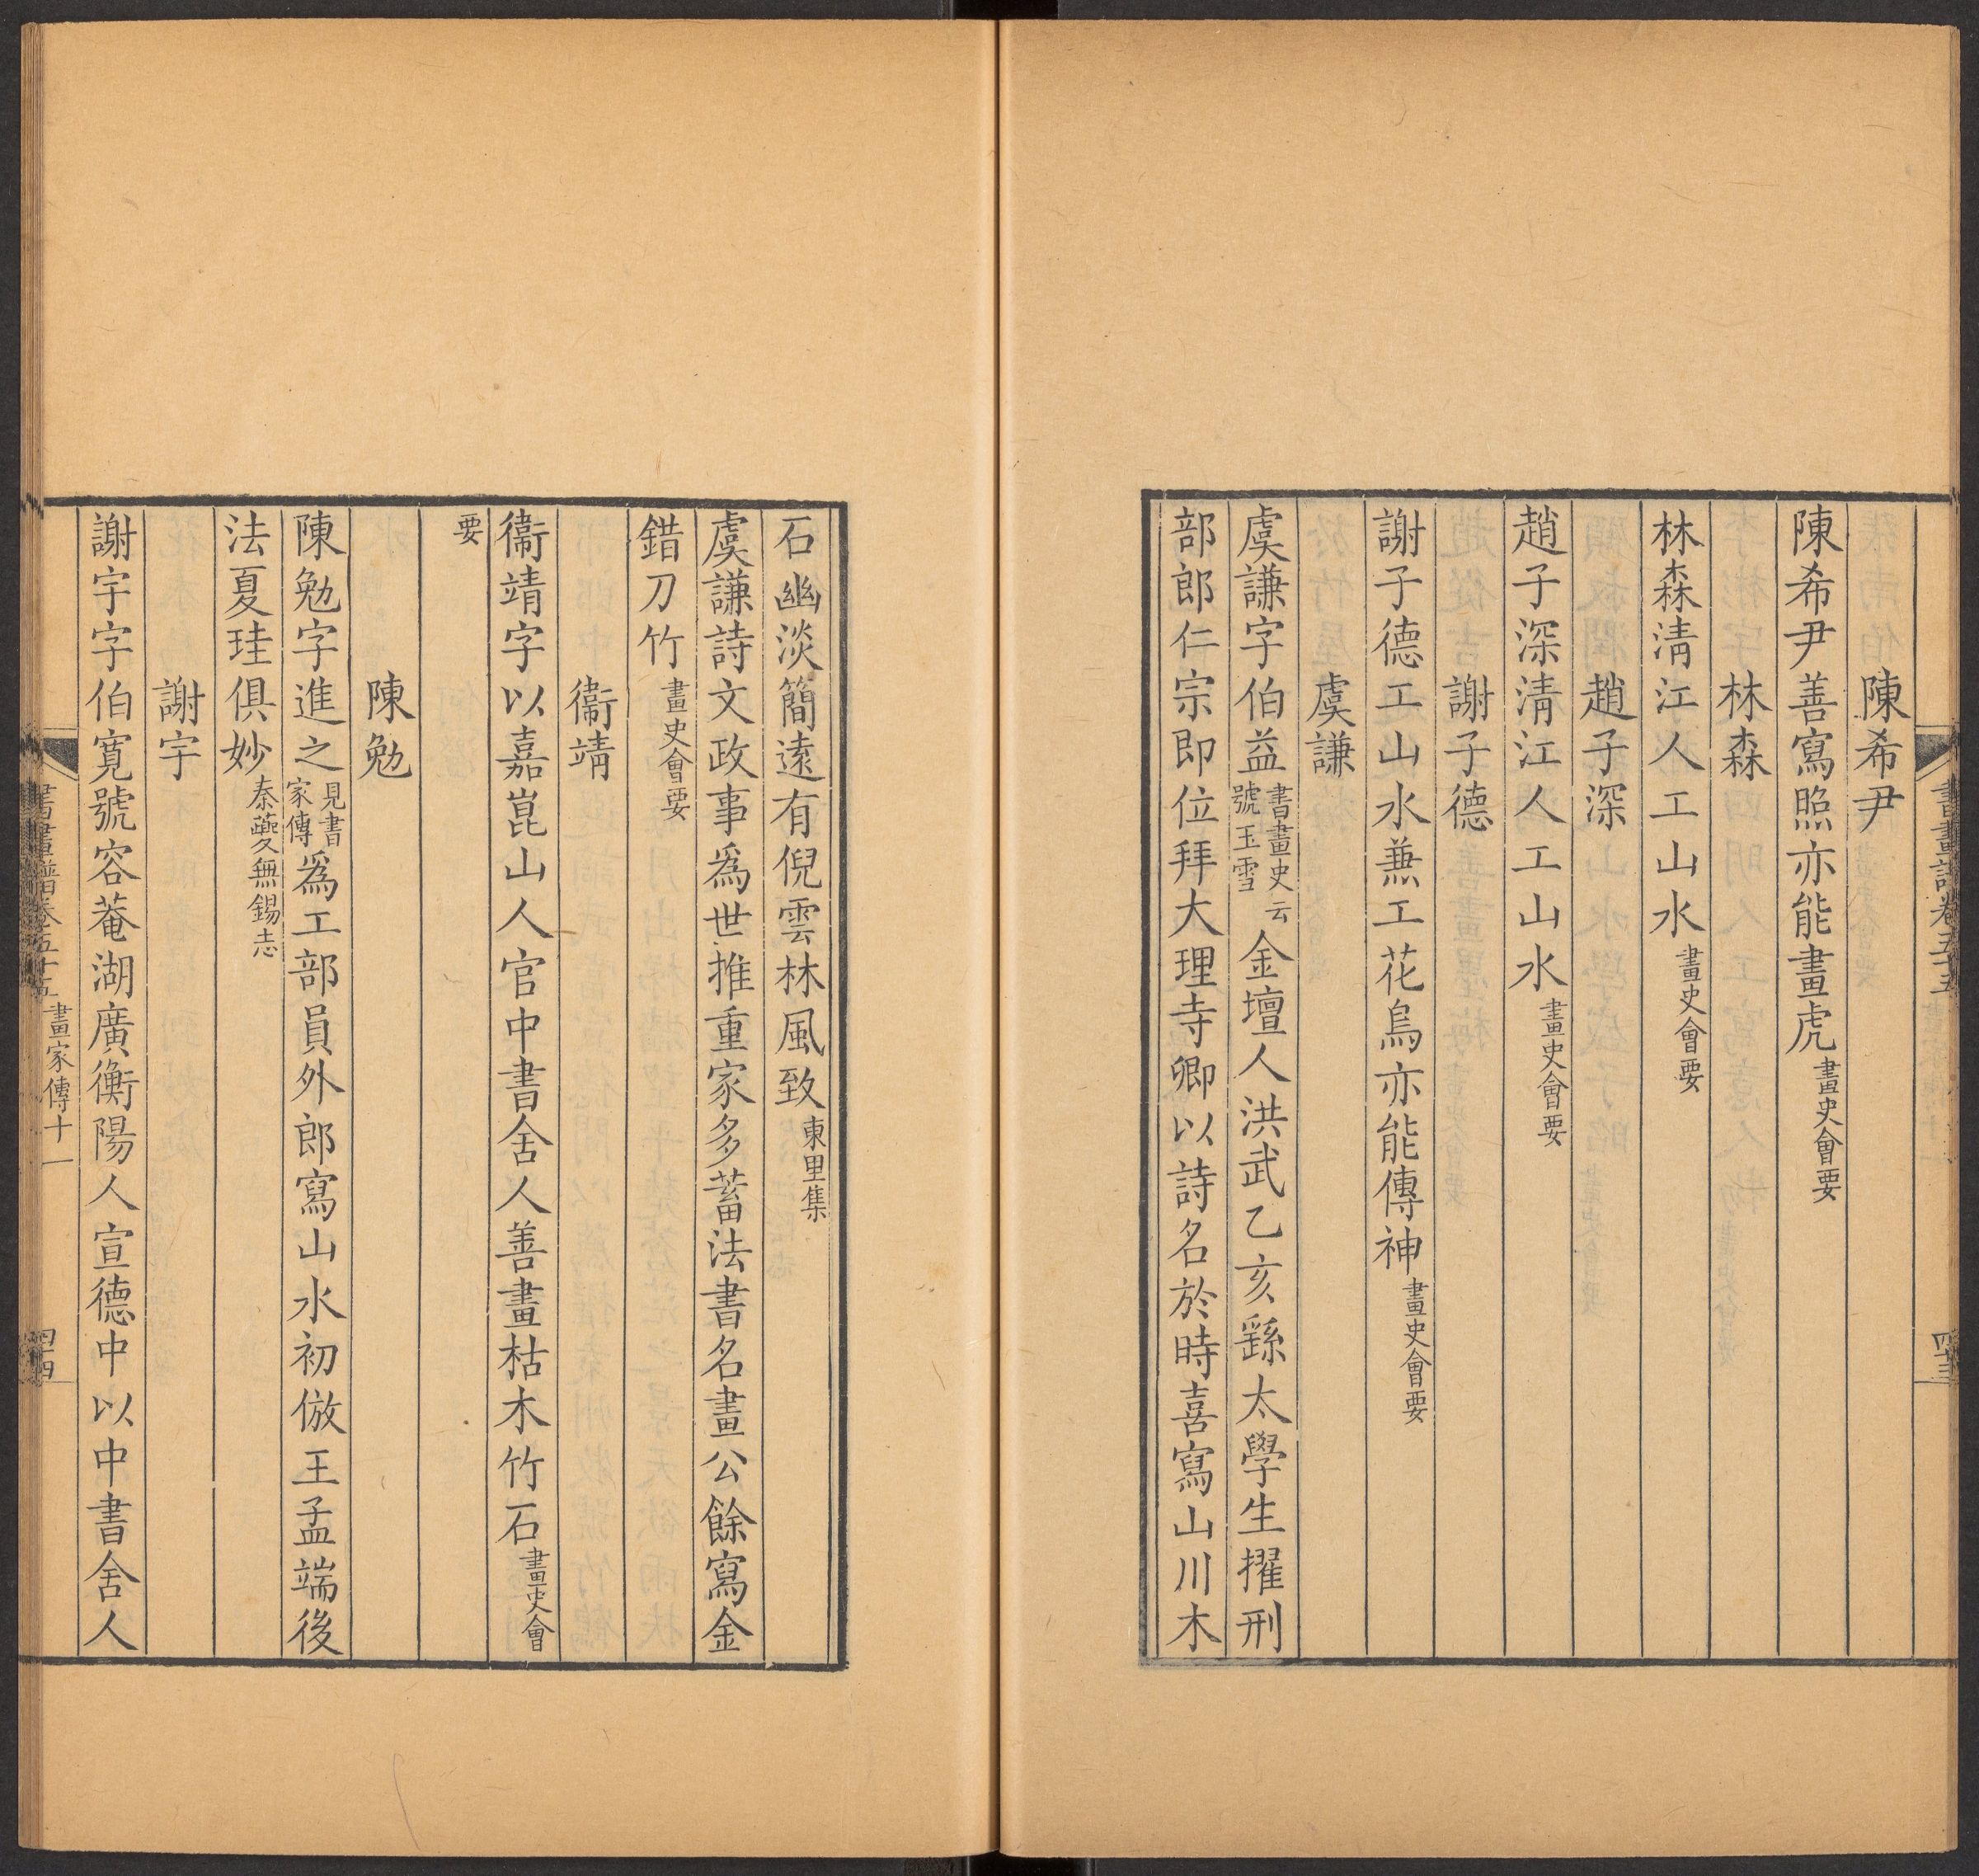 書畫譜卷五十五
陳希尹
陳希尹善寫照亦能畫虎畫史會要
林森
林森淸江人工山水畫史會要
趙子深
趙子深淸江人工山水畫史會要
謝子德
謝子德工山水兼工花鳥亦能傳神畫史會要
虞謙
虞謙字伯益書畫史云號玉雪金壇人洪武乙亥繇太學生擢刑
部郎仁宗即位拜大理寺卿以詩名於時喜寫山川木
石幽淡簡遠有倪雲林風致東里集
虞謙詩文政事爲世推重家多蓄法書名畫公餘寫金
錯刀竹畫史會要
衞靖
衞靖字以嘉崑山人官中書舍人善畫枯木竹石畫史會
要
陳勉
陳勉字進之見書家傳爲工部員外郎寫山水初倣王孟端後
法夏珪俱妙秦夔無錫志
謝宇
謝宇字伯寬號容菴湖廣衡陽人宣德中以中書舍人
書畫譜卷五十五 畫家傳十一 四十四